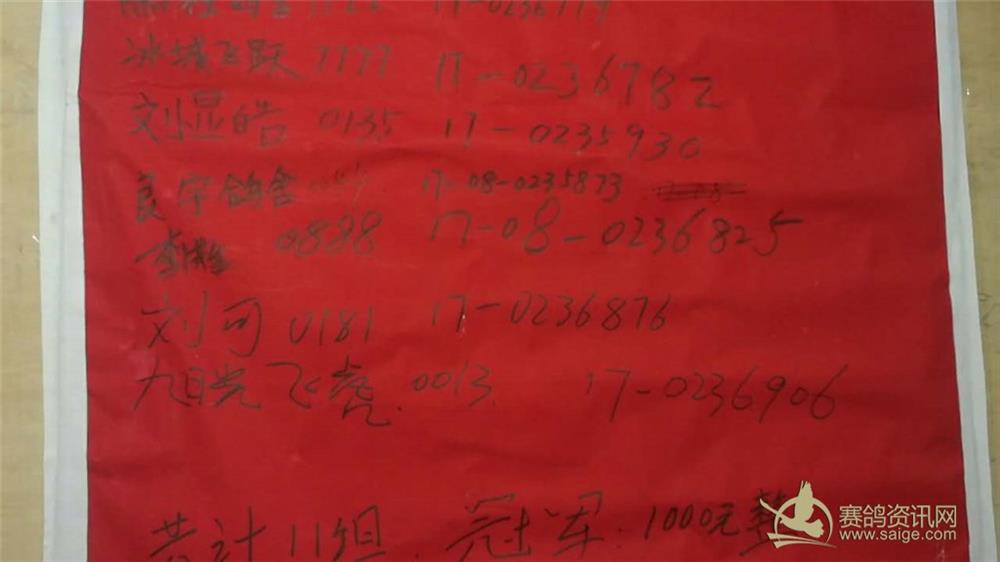 17-0236779
冰城飞跃 7777 17-0236782
刘显皓 0135 17-0235930
良宇鸽舍 17-08-0235873
0888 17-08-0236825
刘可 0181 17-0236876
飞 0013. 17-0236906
共计11组. 冠军. 1000元整
赛鸽资讯网
www.saige.com